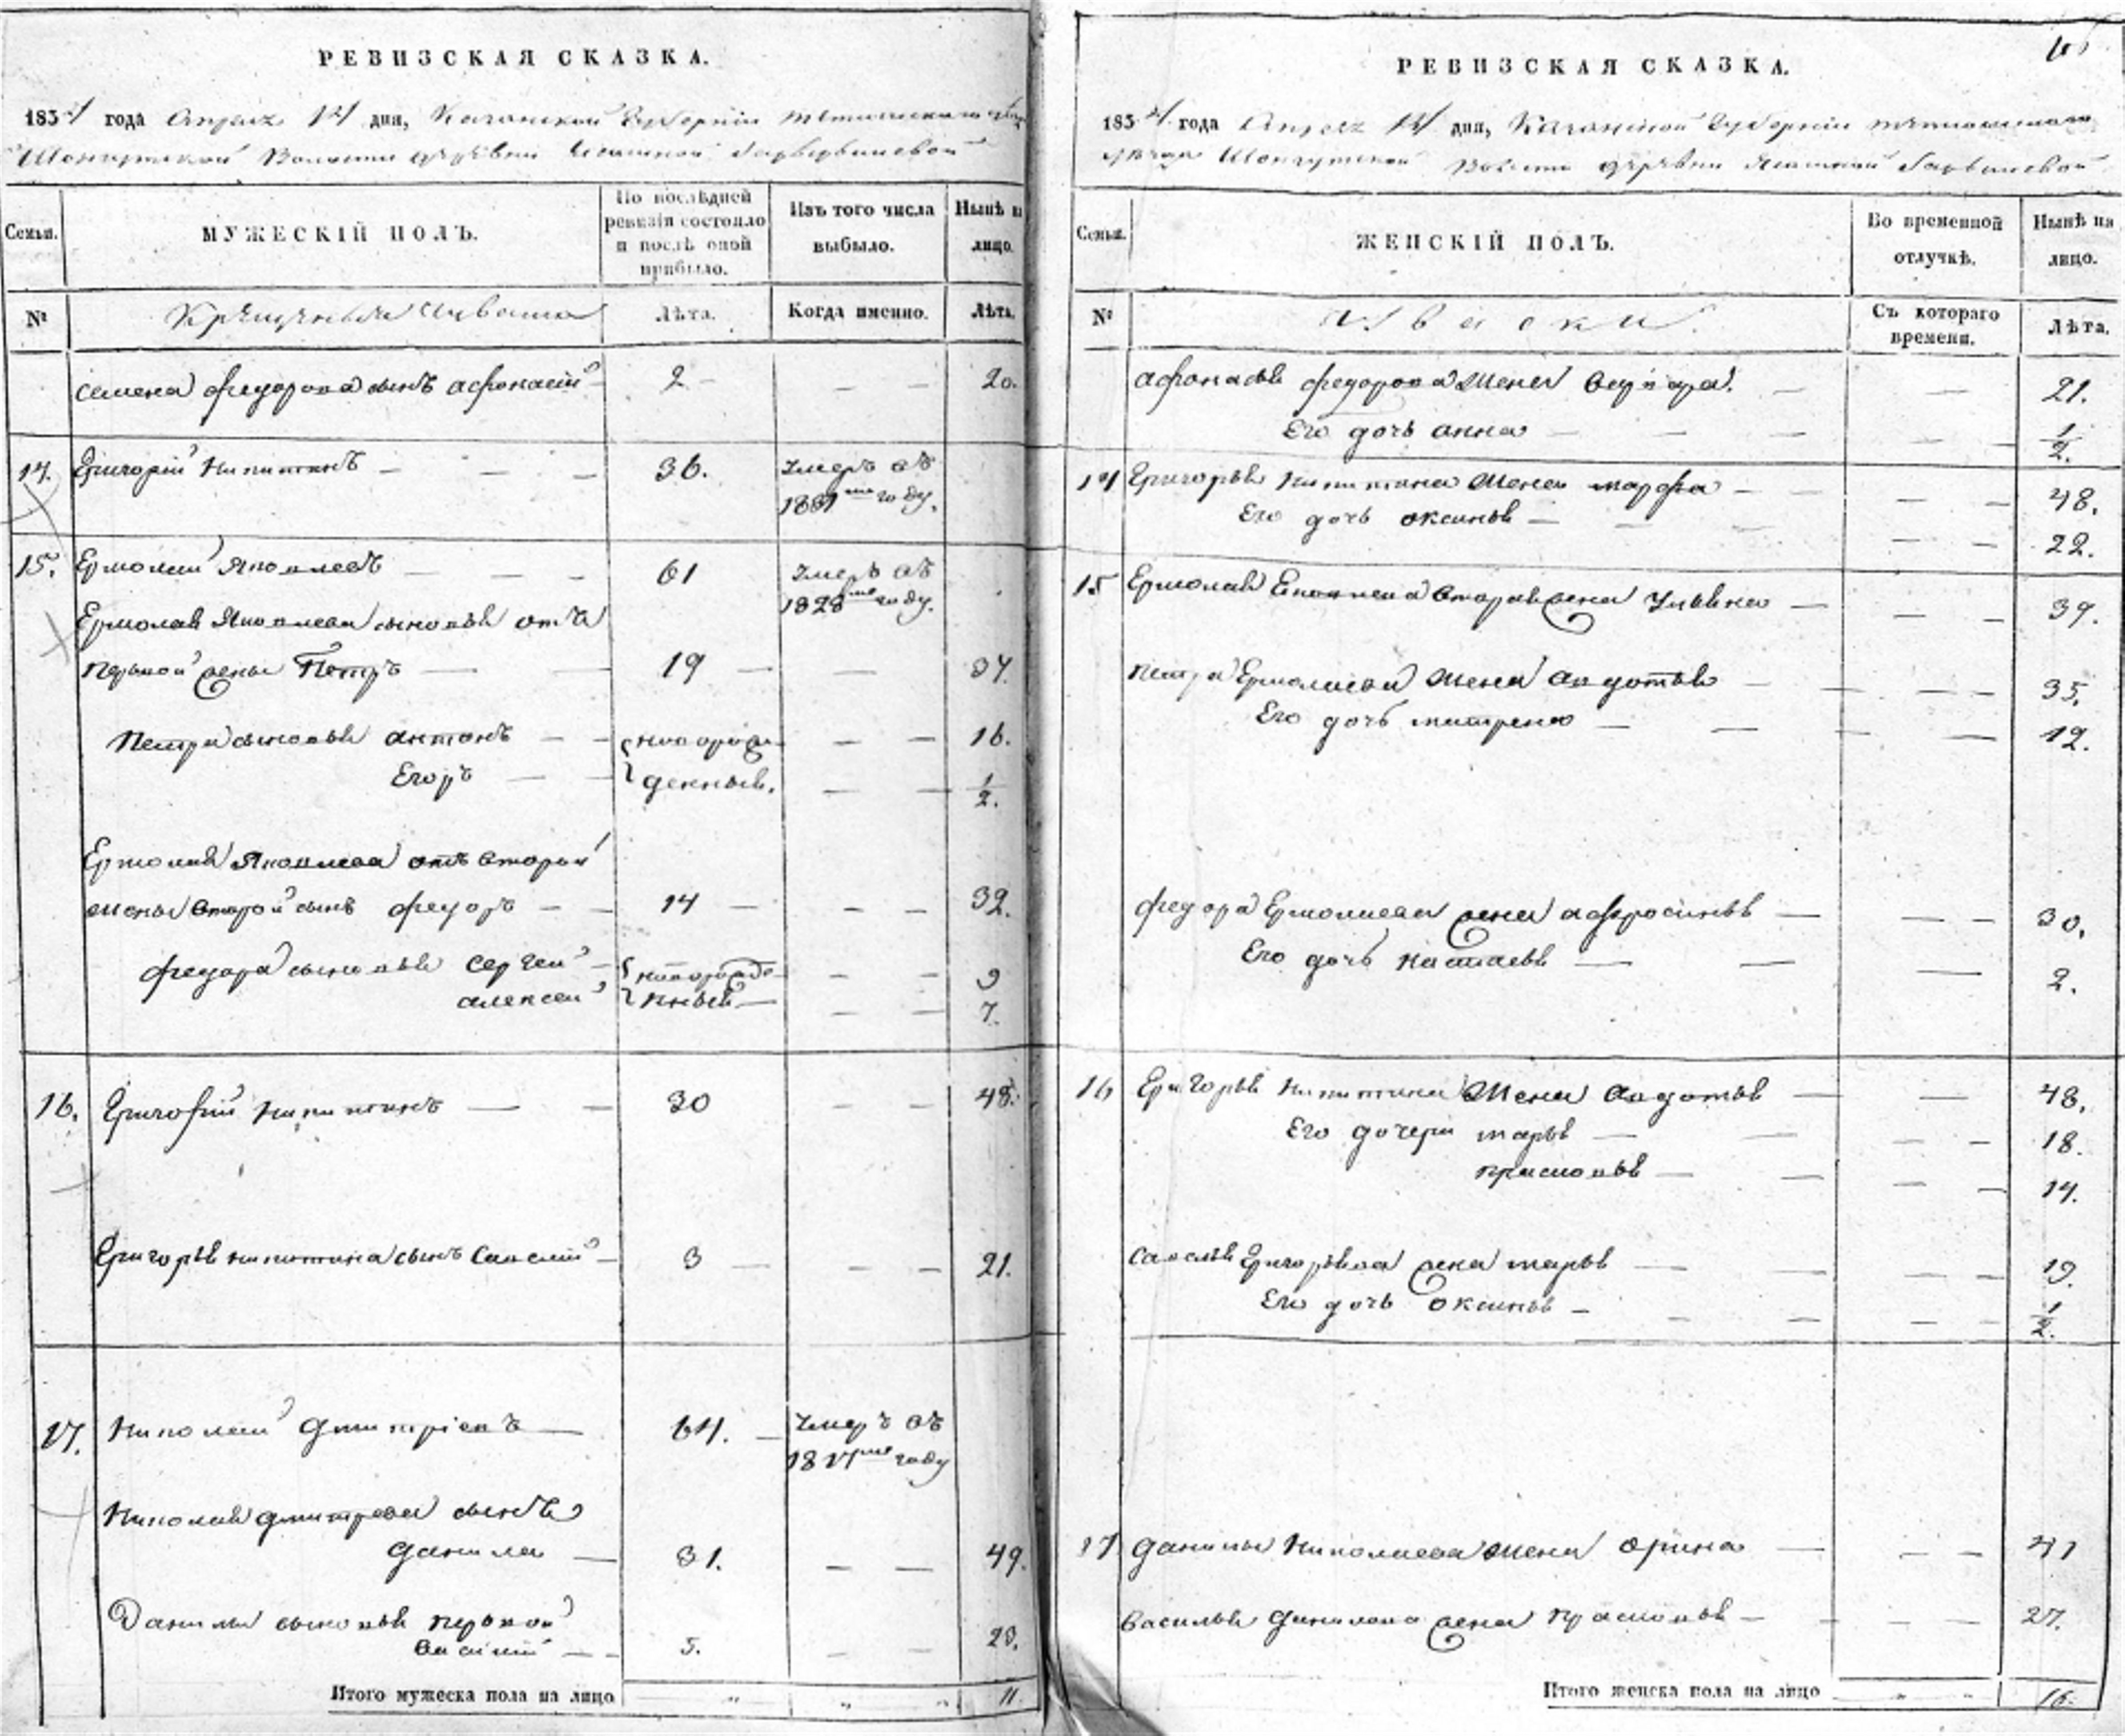 РЕВИЗСКАЯ СКАЗКА.
1834 года Апреля 14 дня, Казанской Губернии Тетюшскаго
Волости деревни
Семьи.
МУЖЕСКІЙ ПОЛЪ.
По послѣдней ревизіи состояло и послѣ оной прибыло.
Изъ того числа выбыло.
Нынѣ на лицо.
№
Крещеныя Чуваша
Лѣта.
Когда именно.
Лѣта.
Семена Федорова сынъ Афонасей 2 — — 20.
14. Григорій Никитинъ — — — 36. Умеръ въ
году.
15. Ермолай Яковлевъ — — — 61 Умеръ въ
1828 году.
Ермолая Яковлева сыновья отъ
первой жены Петръ — — 19 — — 37.
Петра сыновья Антонъ — — новорож — — 16.
Егоръ — — денныя. — — 1/2.
Ермолая Яковлева отъ второй
жены второй сынъ Федоръ — — 14 — — — 32.
Федора сыновья Сергей — новорожде — — 9
Алексей нныя — — — 7.
16. Григорій Никитинъ — — 30 — — 48.
Григорья Никитина сынъ Савелій — 3 — — — 21.
17. Николай Дмитріевъ — 64. — Умеръ въ
году
Николая Дмитрева сынъ
Данила — 31. — — 49.
Данилы сыновья первой
Василій — — 5. — — 23.
Итого мужеска пола на лицо „ „ „ 11.
РЕВИЗСКАЯ СКАЗКА.
1834 года Апреля 14 дня, Казанской Губернии Тетюшскаго
Волости деревни
Семьи.
ЖЕНСКІЙ ПОЛЪ.
Во временной отлучкѣ.
Нынѣ на лицо.
№
Съ котораго времени.
Лѣта.
Афонасья Федорова жена — — 21.
Его дочь Анна — — — — — 1/2.
14 Григорья Никитина жена Марфа — — — — 48.
Его дочь Оксинья — — — — — 22.
15 Ермолая Яковлева вторая жена Ульяна — — — 39.
Петра Ермолаева жена Авдотья — — — — 35.
Его дочь Матрена — — — — — 12.
Федора Ермолаева жена Афросинья — — — 30.
Его дочь Настасья — — — 2.
16 Григорья Никитина жена Авдотья — — 48.
Его дочери Марья — — — — 18.
Прасковья — — — — 14.
Савелья Григорьева жена Марья — — — — 19.
Его дочь Оксинья — — — — — 1/2.
17 Данилы Николаева жена Орина — — — 41
Василья Данилова жена Прасковья — — — — 27.
Итого женска пола на лицо „ „ 16.